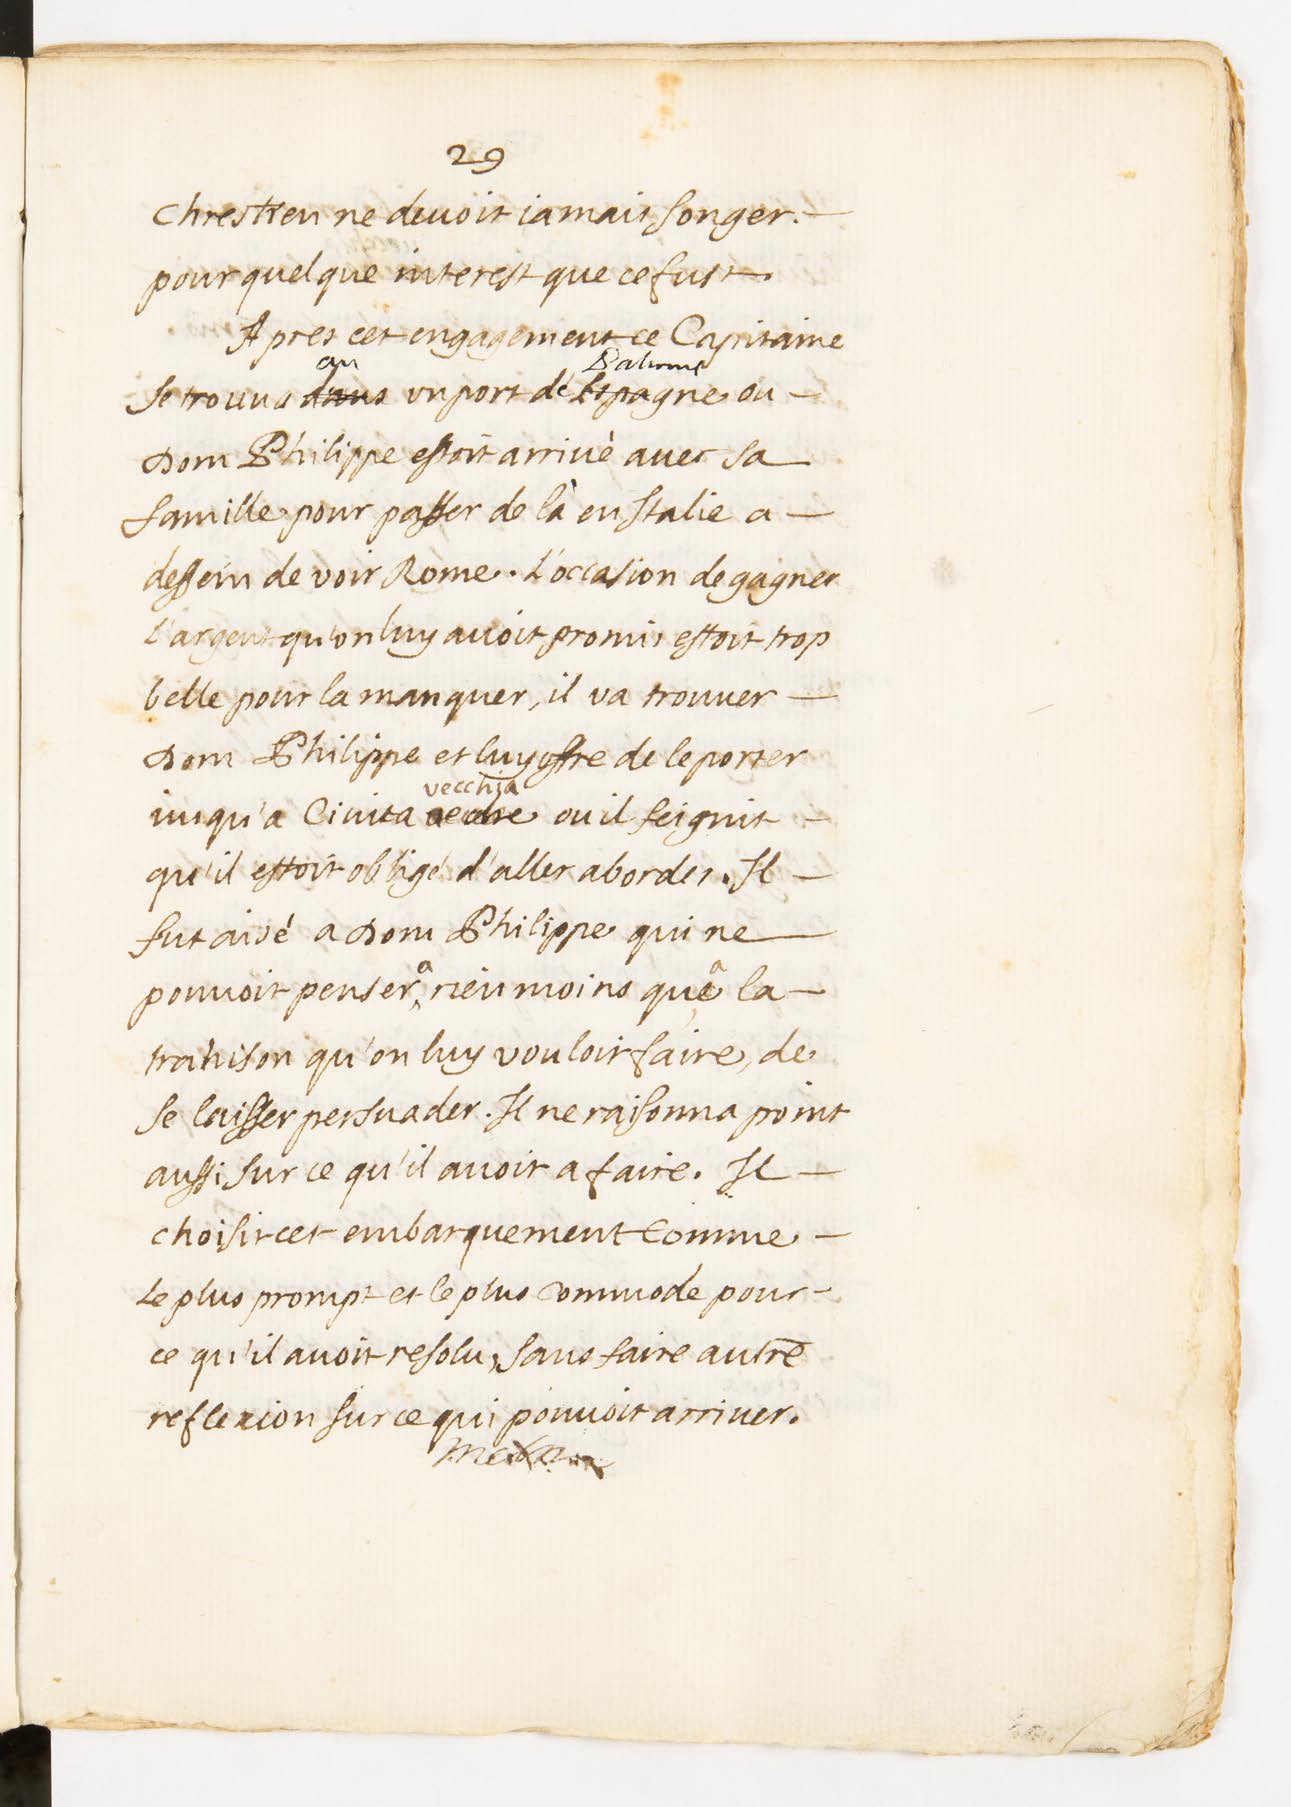 29
chrestien ne deuoit iamais songer.
pour quelque interest que ce fust.
Apres cet engagement ce Capitaine
au Palerme
se trouua dans vn port de l'Espagne ou
Dom Philippe estoit arriué auec sa
famille pour passer de là en Italie a
dessein de voir Rome. L'occasion de gagner
l'argent qu'on luy auoit promis estoit trop
belle pour la manquer, il va trouuer
Dom Philippe et luy offre de le porter
vecchia
iusqu'a Ciuita ou il feignit
qu'il estoit obligé d'aller aborder. Il
fut aisé a Dom Philippe qui ne
pouuoit penser a rien moins que a la
trahison qu'on luy vouloit faire, de
se laisser persuader. Il ne raisonna point
aussi sur ce qu'il auoit a faire. Il
choisit cet embarquement comme
le plus prompt et le plus commode pour
ce qu'il auoit resolu, sans faire autre
reflexion sur ce qui pouuoit arriuer.